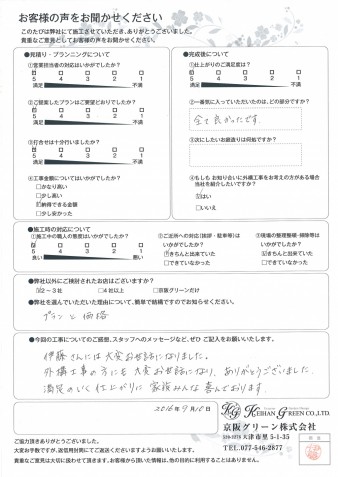 お客様の声をお聞かせください
このたびは弊社にて施工させていただき、ありがとうございました。
貴重なご意見としてお客様の声をお聞かせください。
●見積り・プランニングについて
①営業担当者の対応はいかがでしたか？
5 4 3 2 1
満足 不満
②ご提案したプランはご要望どおりでしたか？
5 4 3 2 1
満足 不満
③打合せは十分行いましたか？
5 4 3 2 1
満足 不満
④工事金額についてはいかがでしたか？
□かなり高い
□少し高い
☑納得できる金額
□少し安かった
●完成後について
①仕上がりのご満足度は？
5 4 3 2 1
満足 不満
②一番気に入っていただいたのは、どの部分ですか？
全て良かったです。
③次にしたいお庭造りは何処ですか？
④もしも お知り合いに外構工事をお考えの方がある場合
当社を紹介したいですか？
☑はい
□いいえ
●施工時の対応について
①施工中の職人の態度はいかがでしたか？
5 4 3 2 1
良い 悪い
②ご近所への対応(挨拶・駐車等)は
いかがでしたか？
☑きちんと出来ていた
□できていなかった
③現場の整理整頓・掃除等は
いかがでしたか？
☑きちんと出来ていた
□できていなかった
●弊社以外にご検討されたお店はございますか？
☑2～3社 □4社以上 □京阪グリーンだけ
●弊社を選んでいただいた理由について、簡単で結構ですのでお知らせください。
プランと価格
●今回の工事についてのご感想、スタッフへのメッセージなど、ぜひ ご記入をお願いいたします。
伊藤さんには大変お世話になりました。
外構工事の方にも大変お世話になり、ありがとうございました。
満足のいく仕上がりに家族みんな喜んでおります。
2016年9月10日
KG KEIHAN GREEN CO.,LTD.
京阪グリーン株式会社
大津市里5-1-35
TEL:077-546-2877
ご協力頂きありがとうございました。
大変お手数ですが、返信用封筒にてご送送くださいますようお願いいたします。
貴重なご意見は大切に扱わせて頂きます。お客様から頂いた情報は、他の目的に利用することはありません。